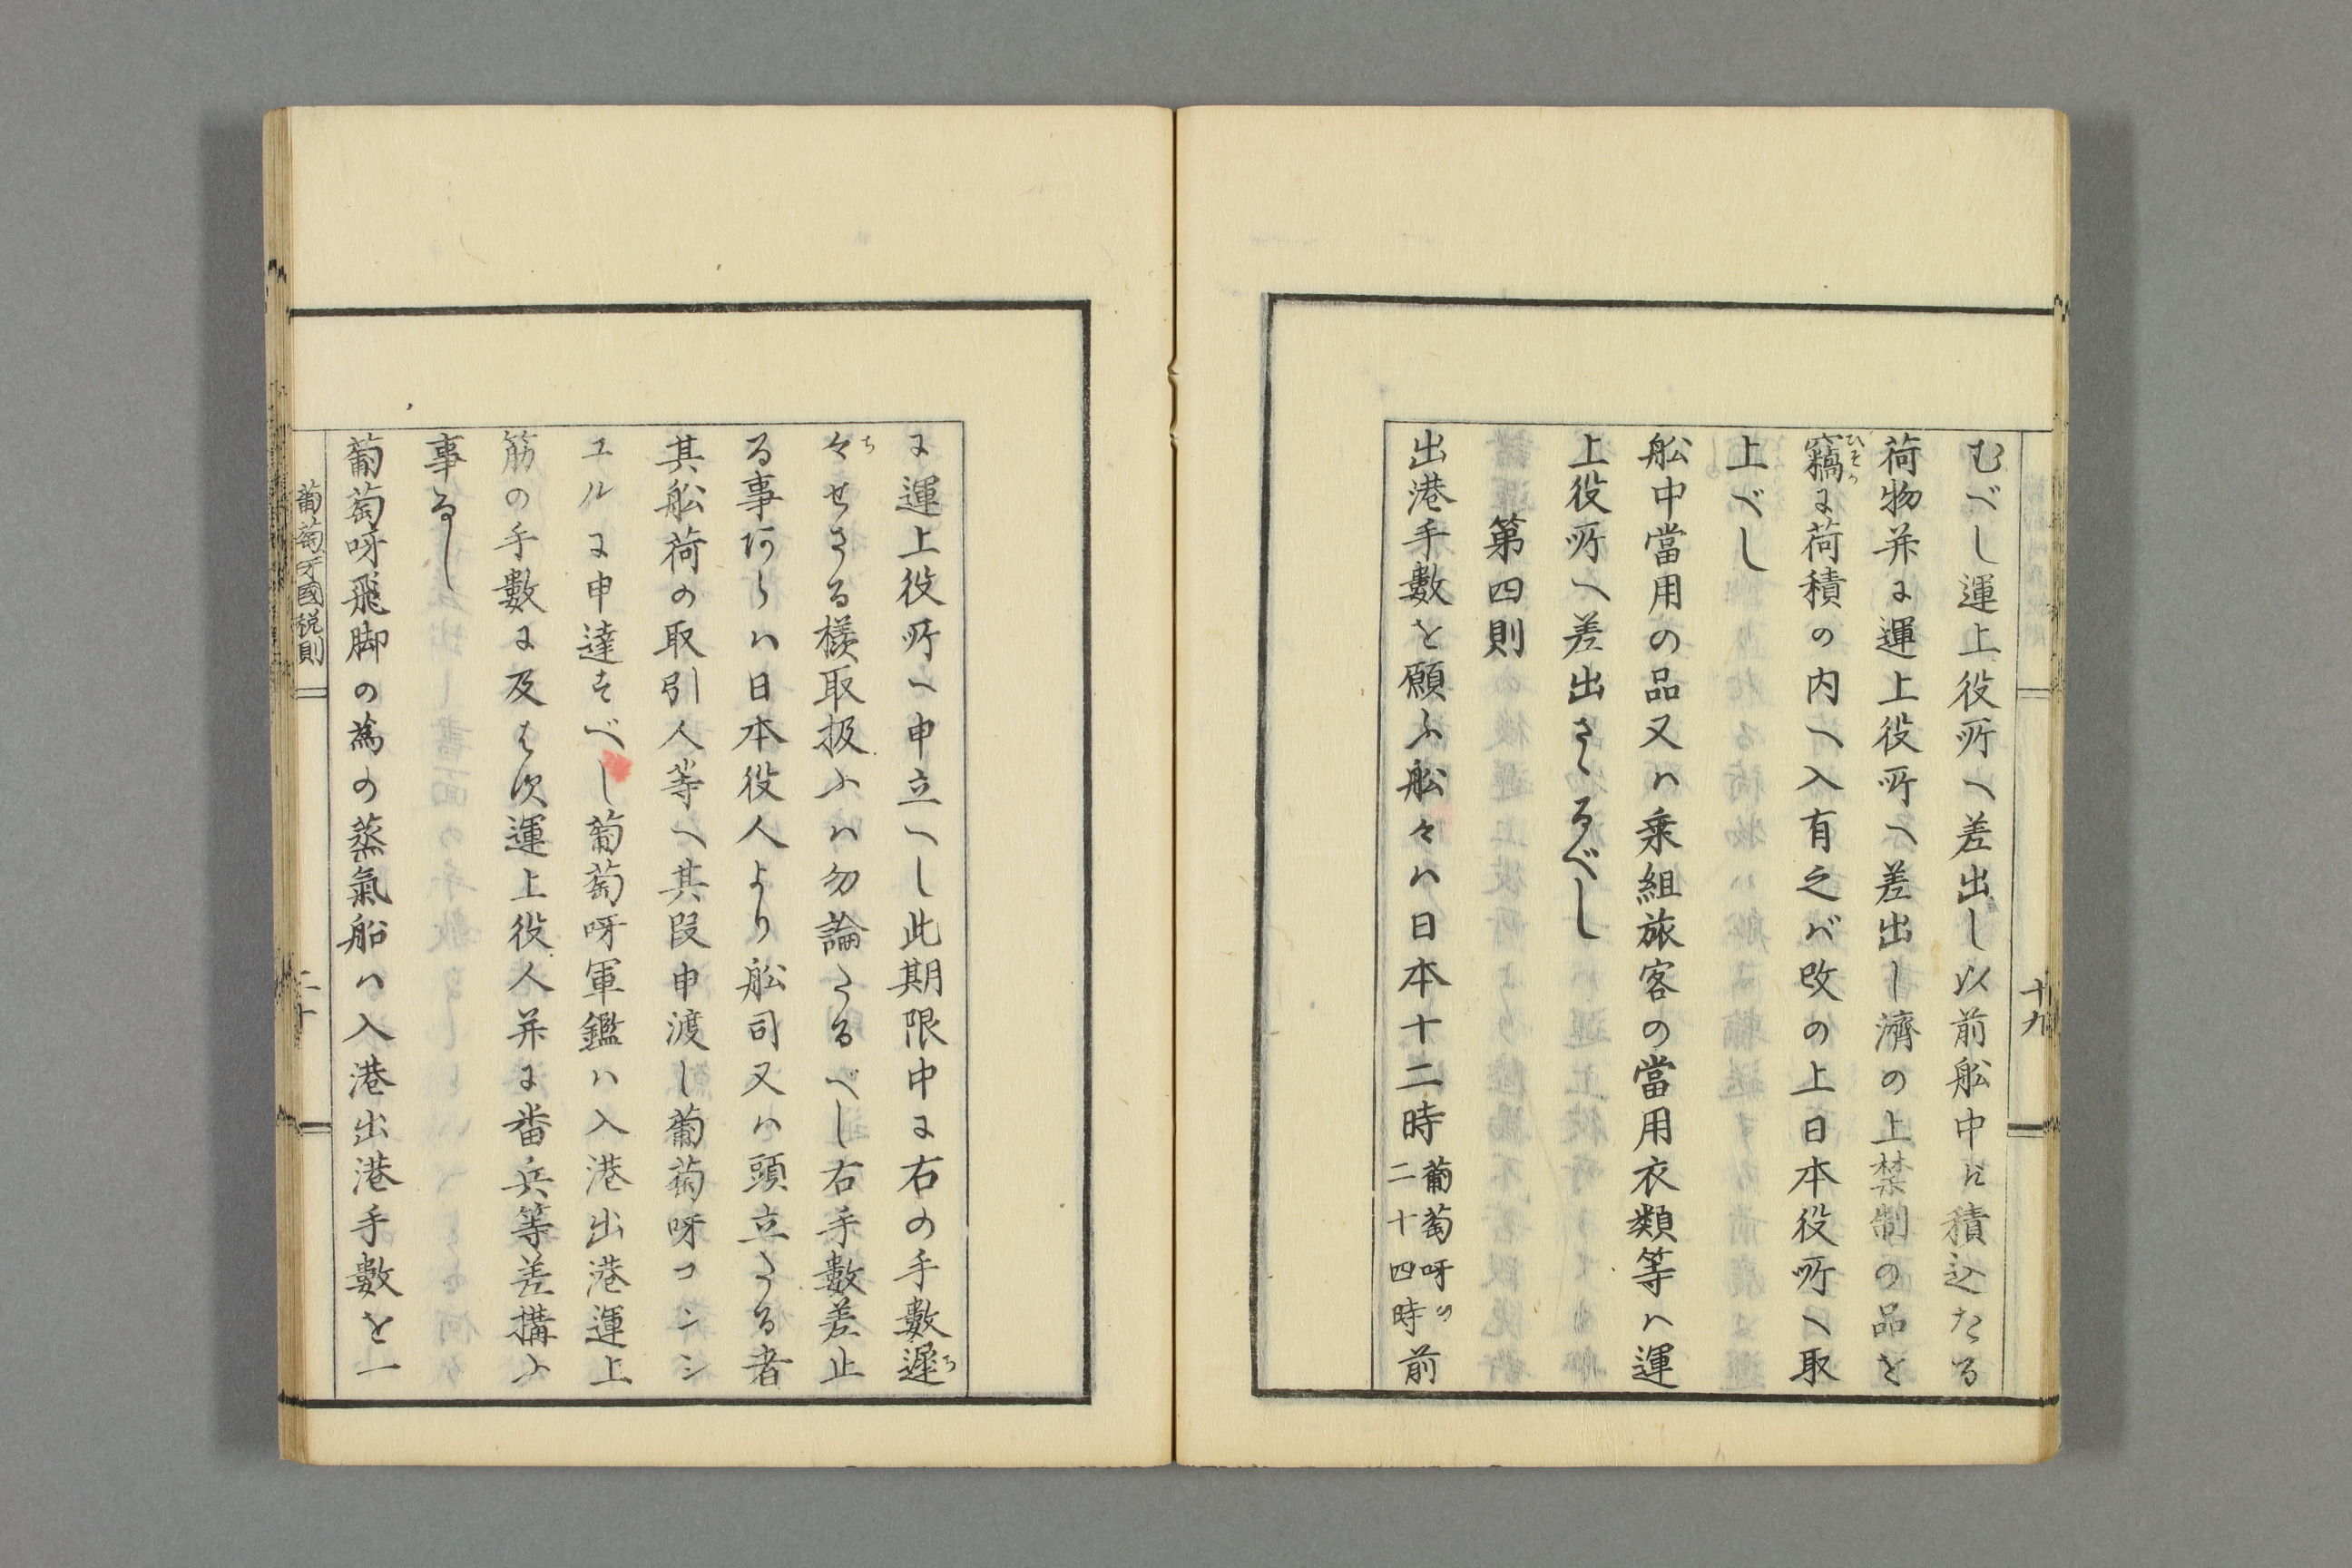 むべし運上役所へ差出し以前舩中に積込たる
荷物并に運上役所へ差出し濟の上禁制の品を
竊に荷積の内へ入有之バ改の上日本役所へ取
上べし
舩中當用の品又ハ乗組旅客の當用衣類等ハ運
上役所へ差出さゝるべし
第四則
出港手數を願ふ舩々ハ日本十二時葡萄呀の二十四時前
十九
に運上役所へ申立へし此期限中に右の手數遅
々せさる樣取扱ふハ勿論たるべし右手數差止
る事阿らハ日本役人より舩司又ハ頭立たる者
其舩荷の取引人等へ其段申渡し葡萄呀コンシ
ユルに申達すべし葡萄呀軍鑑ハ入港出港運上
筋の手數に及はす運上役人并に番兵等差構ふ
事なし
葡萄呀飛脚の為の蒸氣船ハ入港出港手數を一
葡萄牙國税則
二十